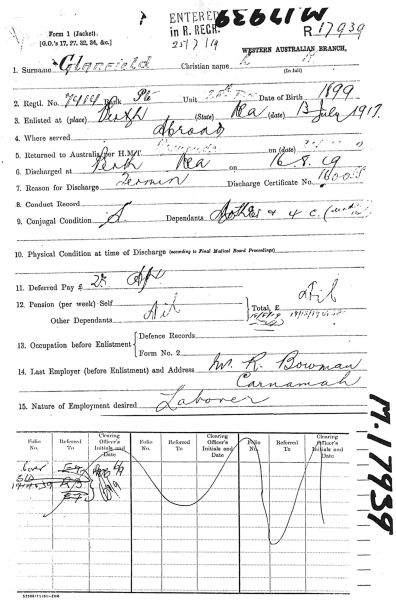 ENTERED
in R. REGR.
25/7/19
M17939
R 17939
Form 1 (Jacket).
[G.O.'s 17, 27, 32, 34, &c.]
WESTERN AUSTRALIAN BRANCH,
1. Surname Glanfield Christian name
(In full)
2. Regtl. No. 7484 Rank Pte Unit 28th Bn Date of Birth 1899
3. Enlisted at (place) Perth (State) Wa (date) 13 July 1917.
4. Where served Abroad
5. Returned to Australia per H.M.T. on (date)
6. Discharged at Perth Wa on 16.8.19
7. Reason for Discharge Termin Discharge Certificate No.
8. Conduct Record
9. Conjugal Condition S. Dependants Mother & 4 C.
10. Physical Condition at time of Discharge (according to Final Medical Board Proceedings)
11. Deferred Pay £
12. Pension (per week) Self Nil Total, £ Nil
Other Dependants
13. Occupation before Enlistment Defence Records
Form No. 2
14. Last Employer (before Enlistment) and Address Mr. R. Bowman
Carnamah
15. Nature of Employment desired Laborer
Folio No. Referred To Clearing Officer's Initials and Date Folio No. Referred To Clearing Officer's Initials and Date Folio No. Referred To Clearing Officer's Initials and Date
Cover
M.17939